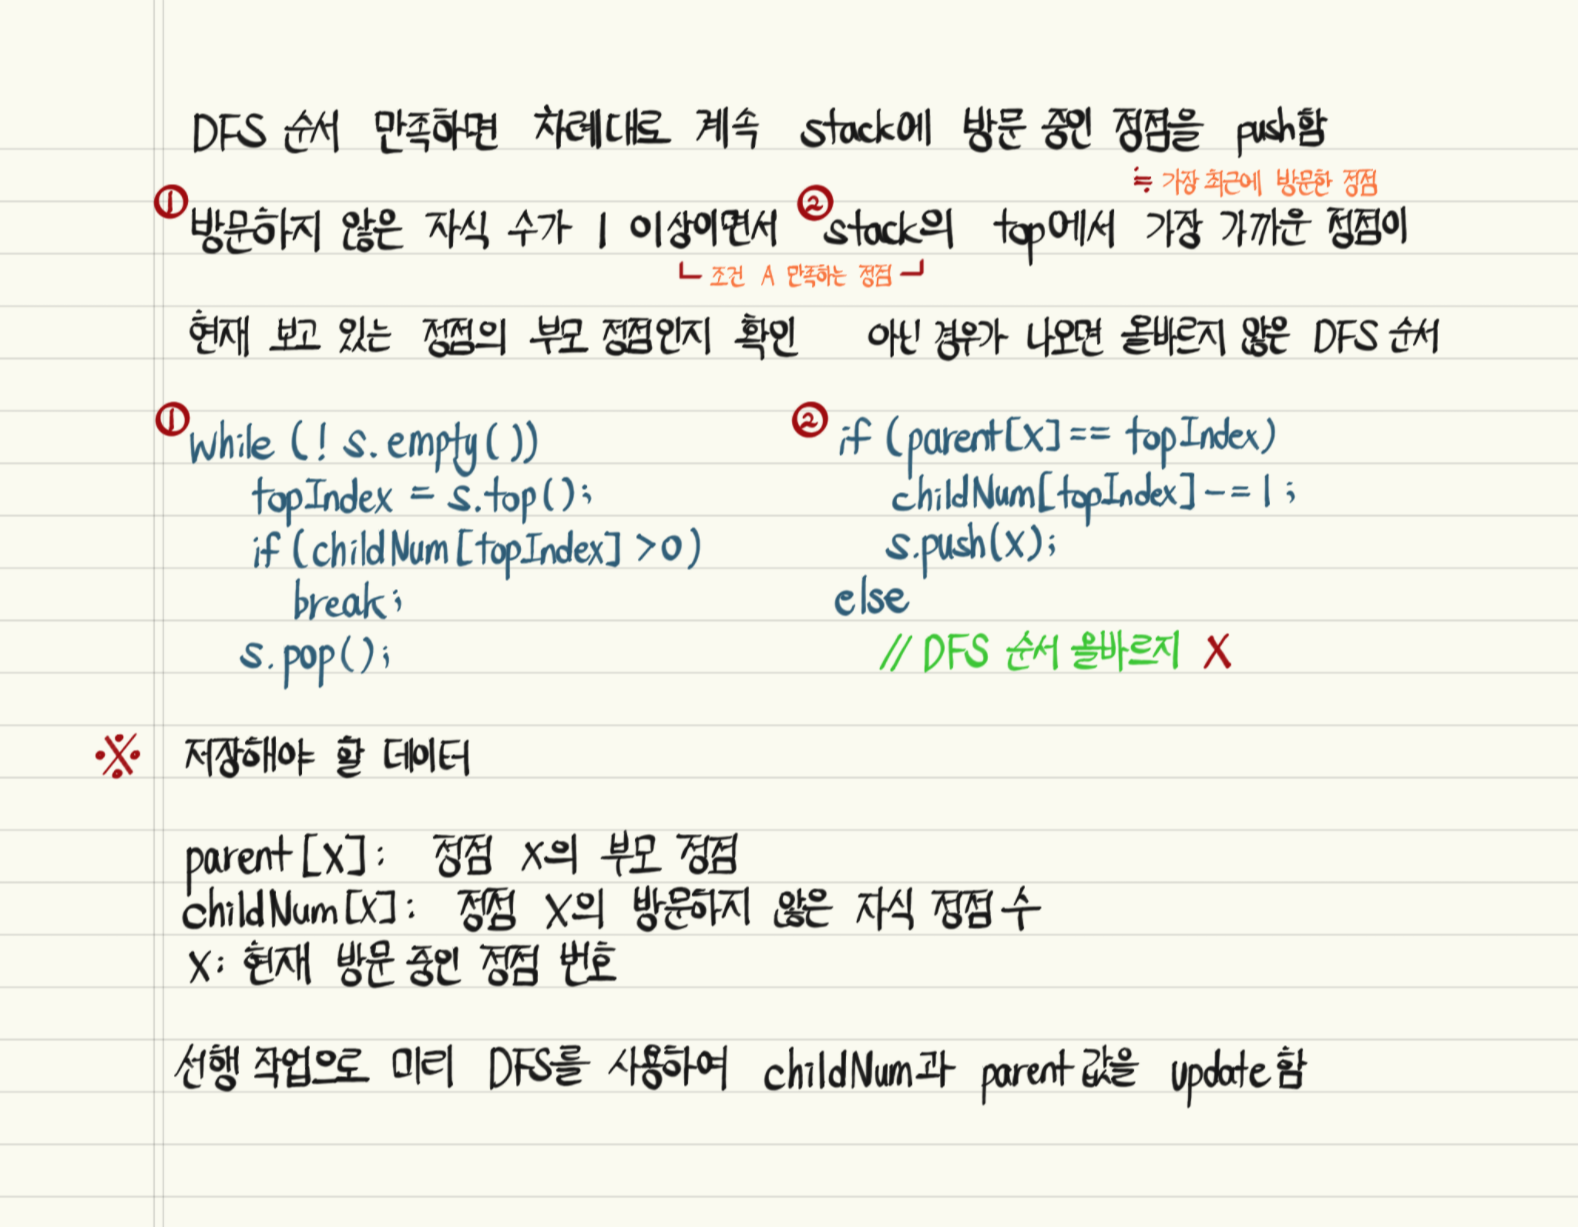 DFS 순서 만족하면 차례대로 계속 stack에 방문 중인 정점을 push함
≒ 가장 최근에 방문한 정점
① 방문하지 않은 자식 수가 1 이상이면서 ② stack의 top에서 가장 가까운 정점이
조건 A 만족하는 정점
현재 보고 있는 정점의 부모 정점인지 확인 아닌 경우가 나오면 올바르지 않은 DFS 순서
① while (! s.empty())
topIndex = s.top();
if (childNum[topIndex] >0)
break;
s.pop();
② if (parent[x] == topIndex)
childNum[topIndex] -= 1;
s.push(x);
else
// DFS 순서 올바르지 X
※ 저장해야 할 데이터
parent[x] : 정점 x의 부모 정점
childNum[x] : 정점 x의 방문하지 않은 자식 정점 수
x : 현재 방문 중인 정점 번호
선행 작업으로 미리 DFS를 사용하여 childNum과 parent 값을 update함